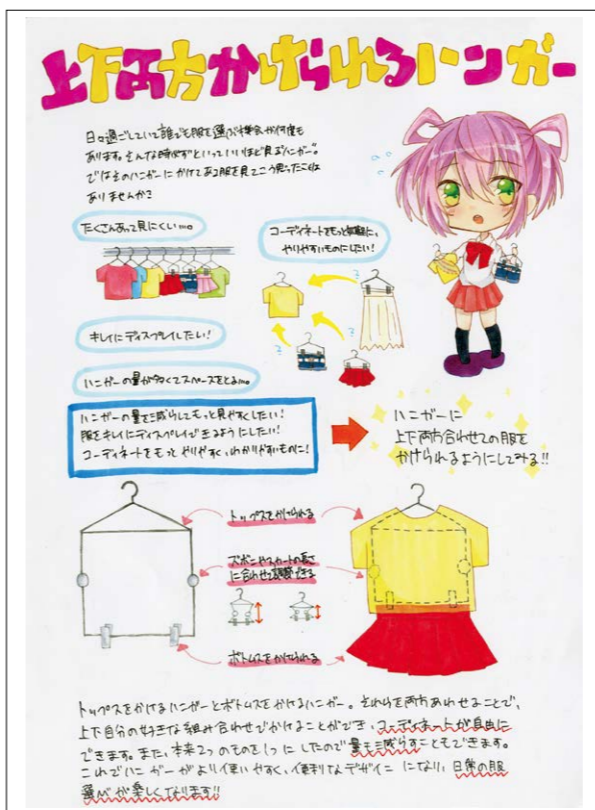 上下両方かけられるハンガー
日々過ごしていて誰でも服を選ぶ機会が何度も
あります。そんな時必ずといっていいほど見るハンガー。
ではそのハンガーにかけてある服を見てこう思ったことは
ありませんか?
たくさんあって見にくい…。
コーディネートをもっと気軽に、
やりやすいものにしたい!
キレイにディスプレイしたい!
ハンガーの量が多くてスペースをとる…。
ハンガーの量を減らしてもっと見やすくしたい!
服をキレイにディスプレイできるようにしたい!
コーディネートをもっとやりやすく、わかりやすいものに!
ハンガーに
上下両方合わせての服を
かけられるようにしてみる!!
トップスをかけられる
ズボンやスカートの長さ
に合わせて調節できる
ボトムスをかけられる
トップスをかけるハンガーとボトムスをかけるハンガー。それらを両方あわせることで、
上下自分の好きな組み合わせでかけることができ、コーディネートが自由に
できます。また、本来2つのものを1つにしたので量も減らすこともできます。
これでハンガーがより使いやすく、便利なデザインになり、日常の服
選びが楽しくなります!!